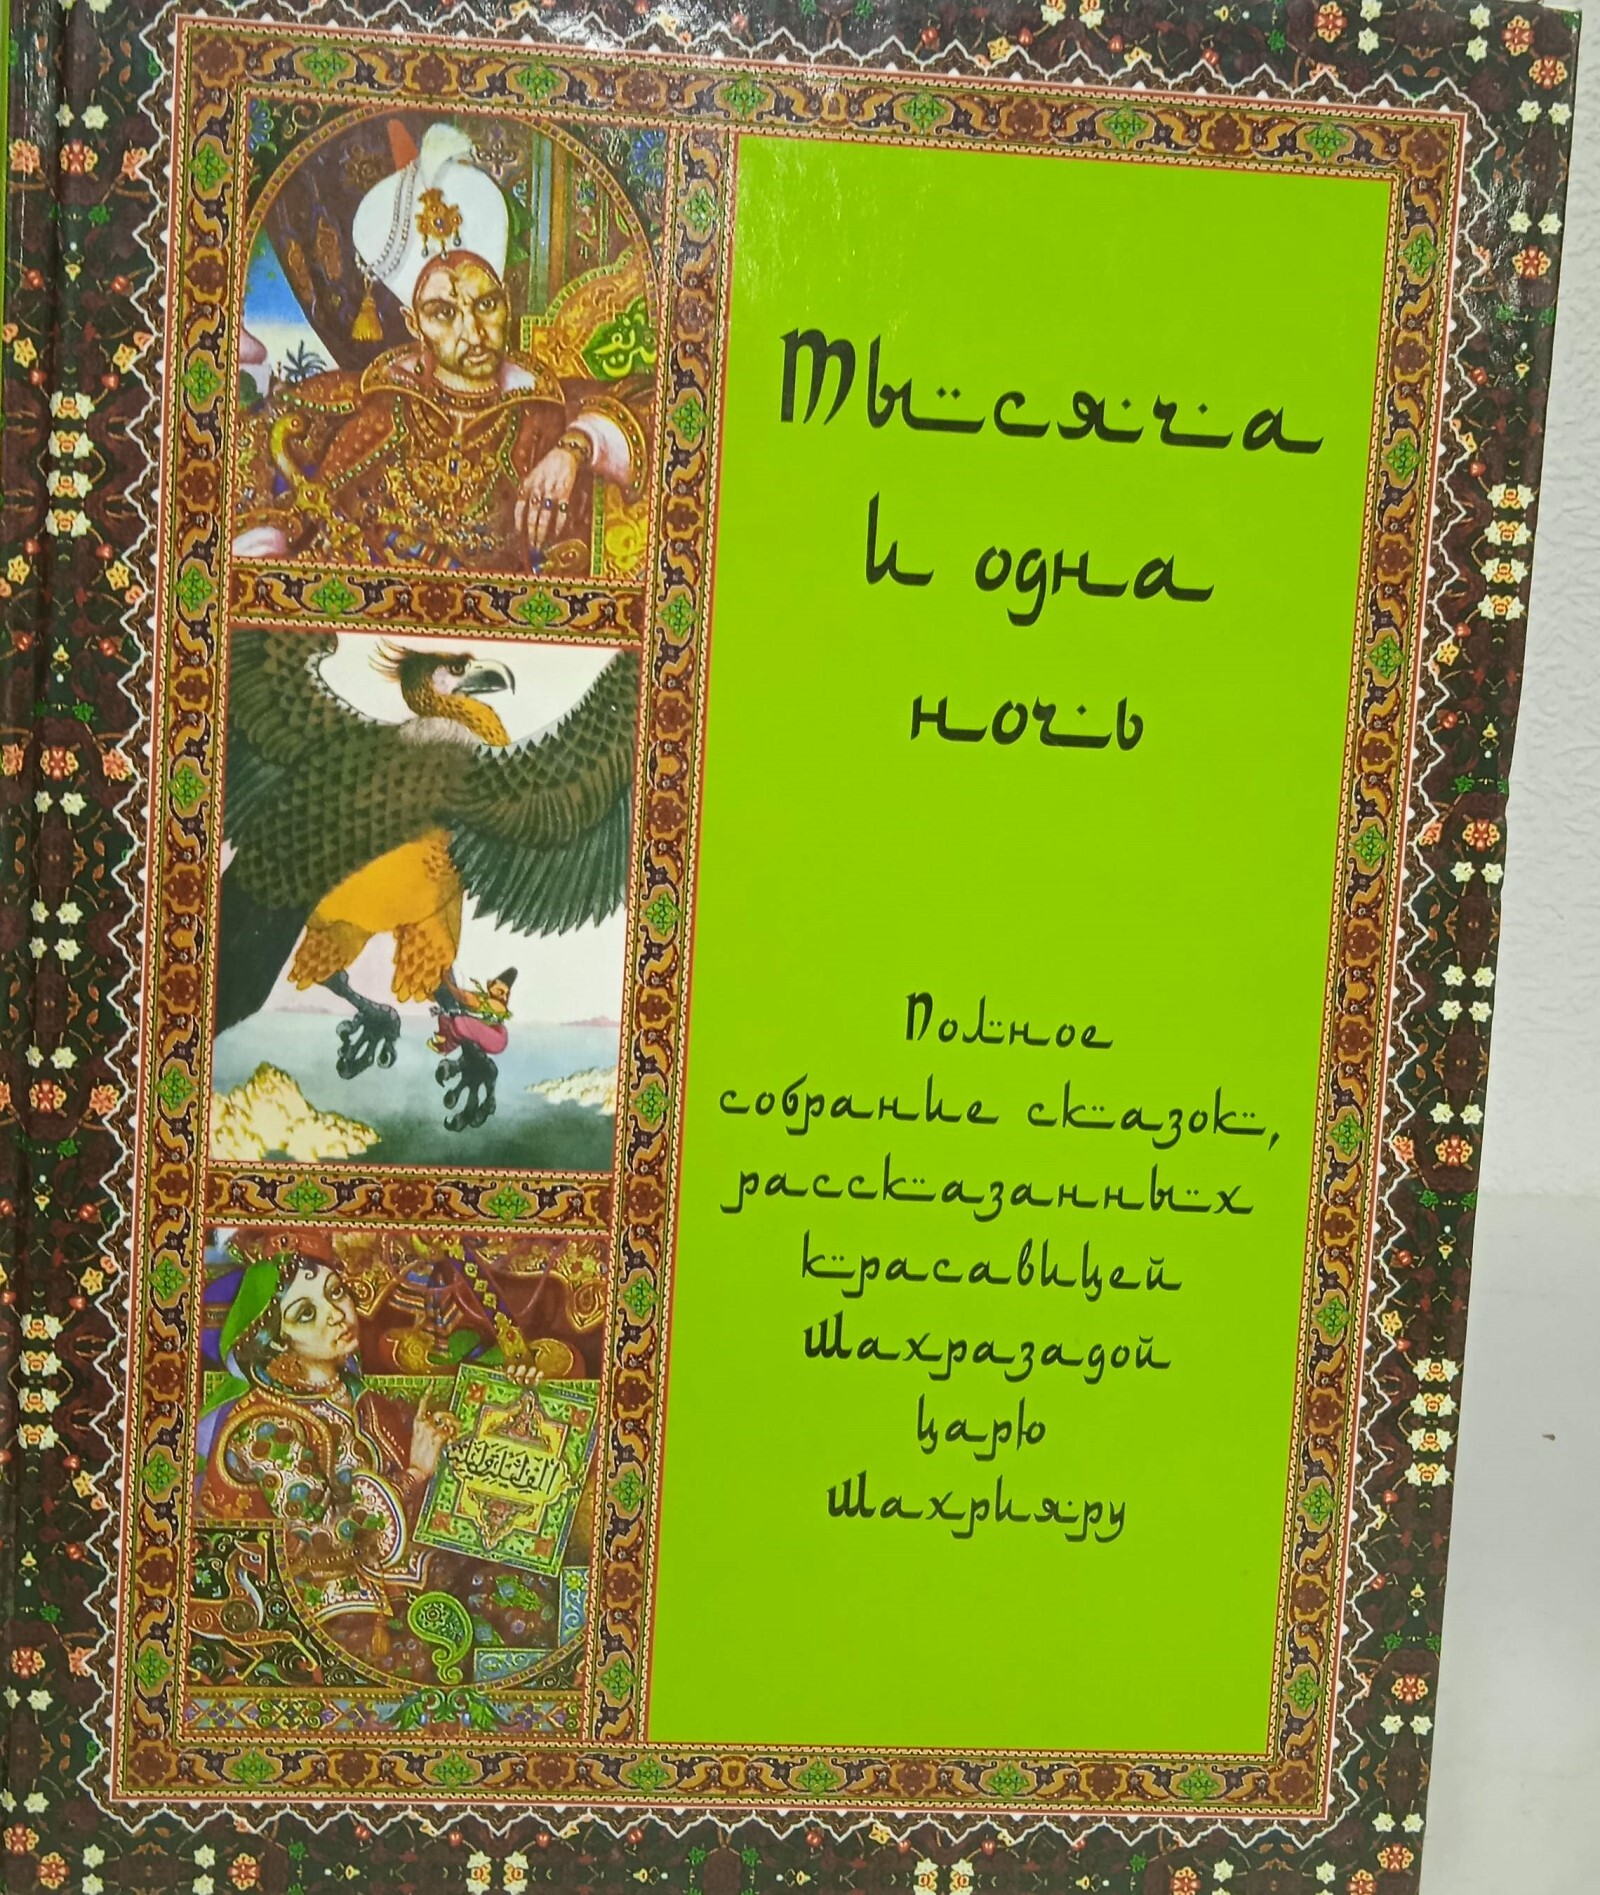 Тысяча
и одна
ночь
Полное
собрание сказок,
рассказанных
красавицей
Шахразадой
царю
Шахрияру
ألف ليلة وليلة